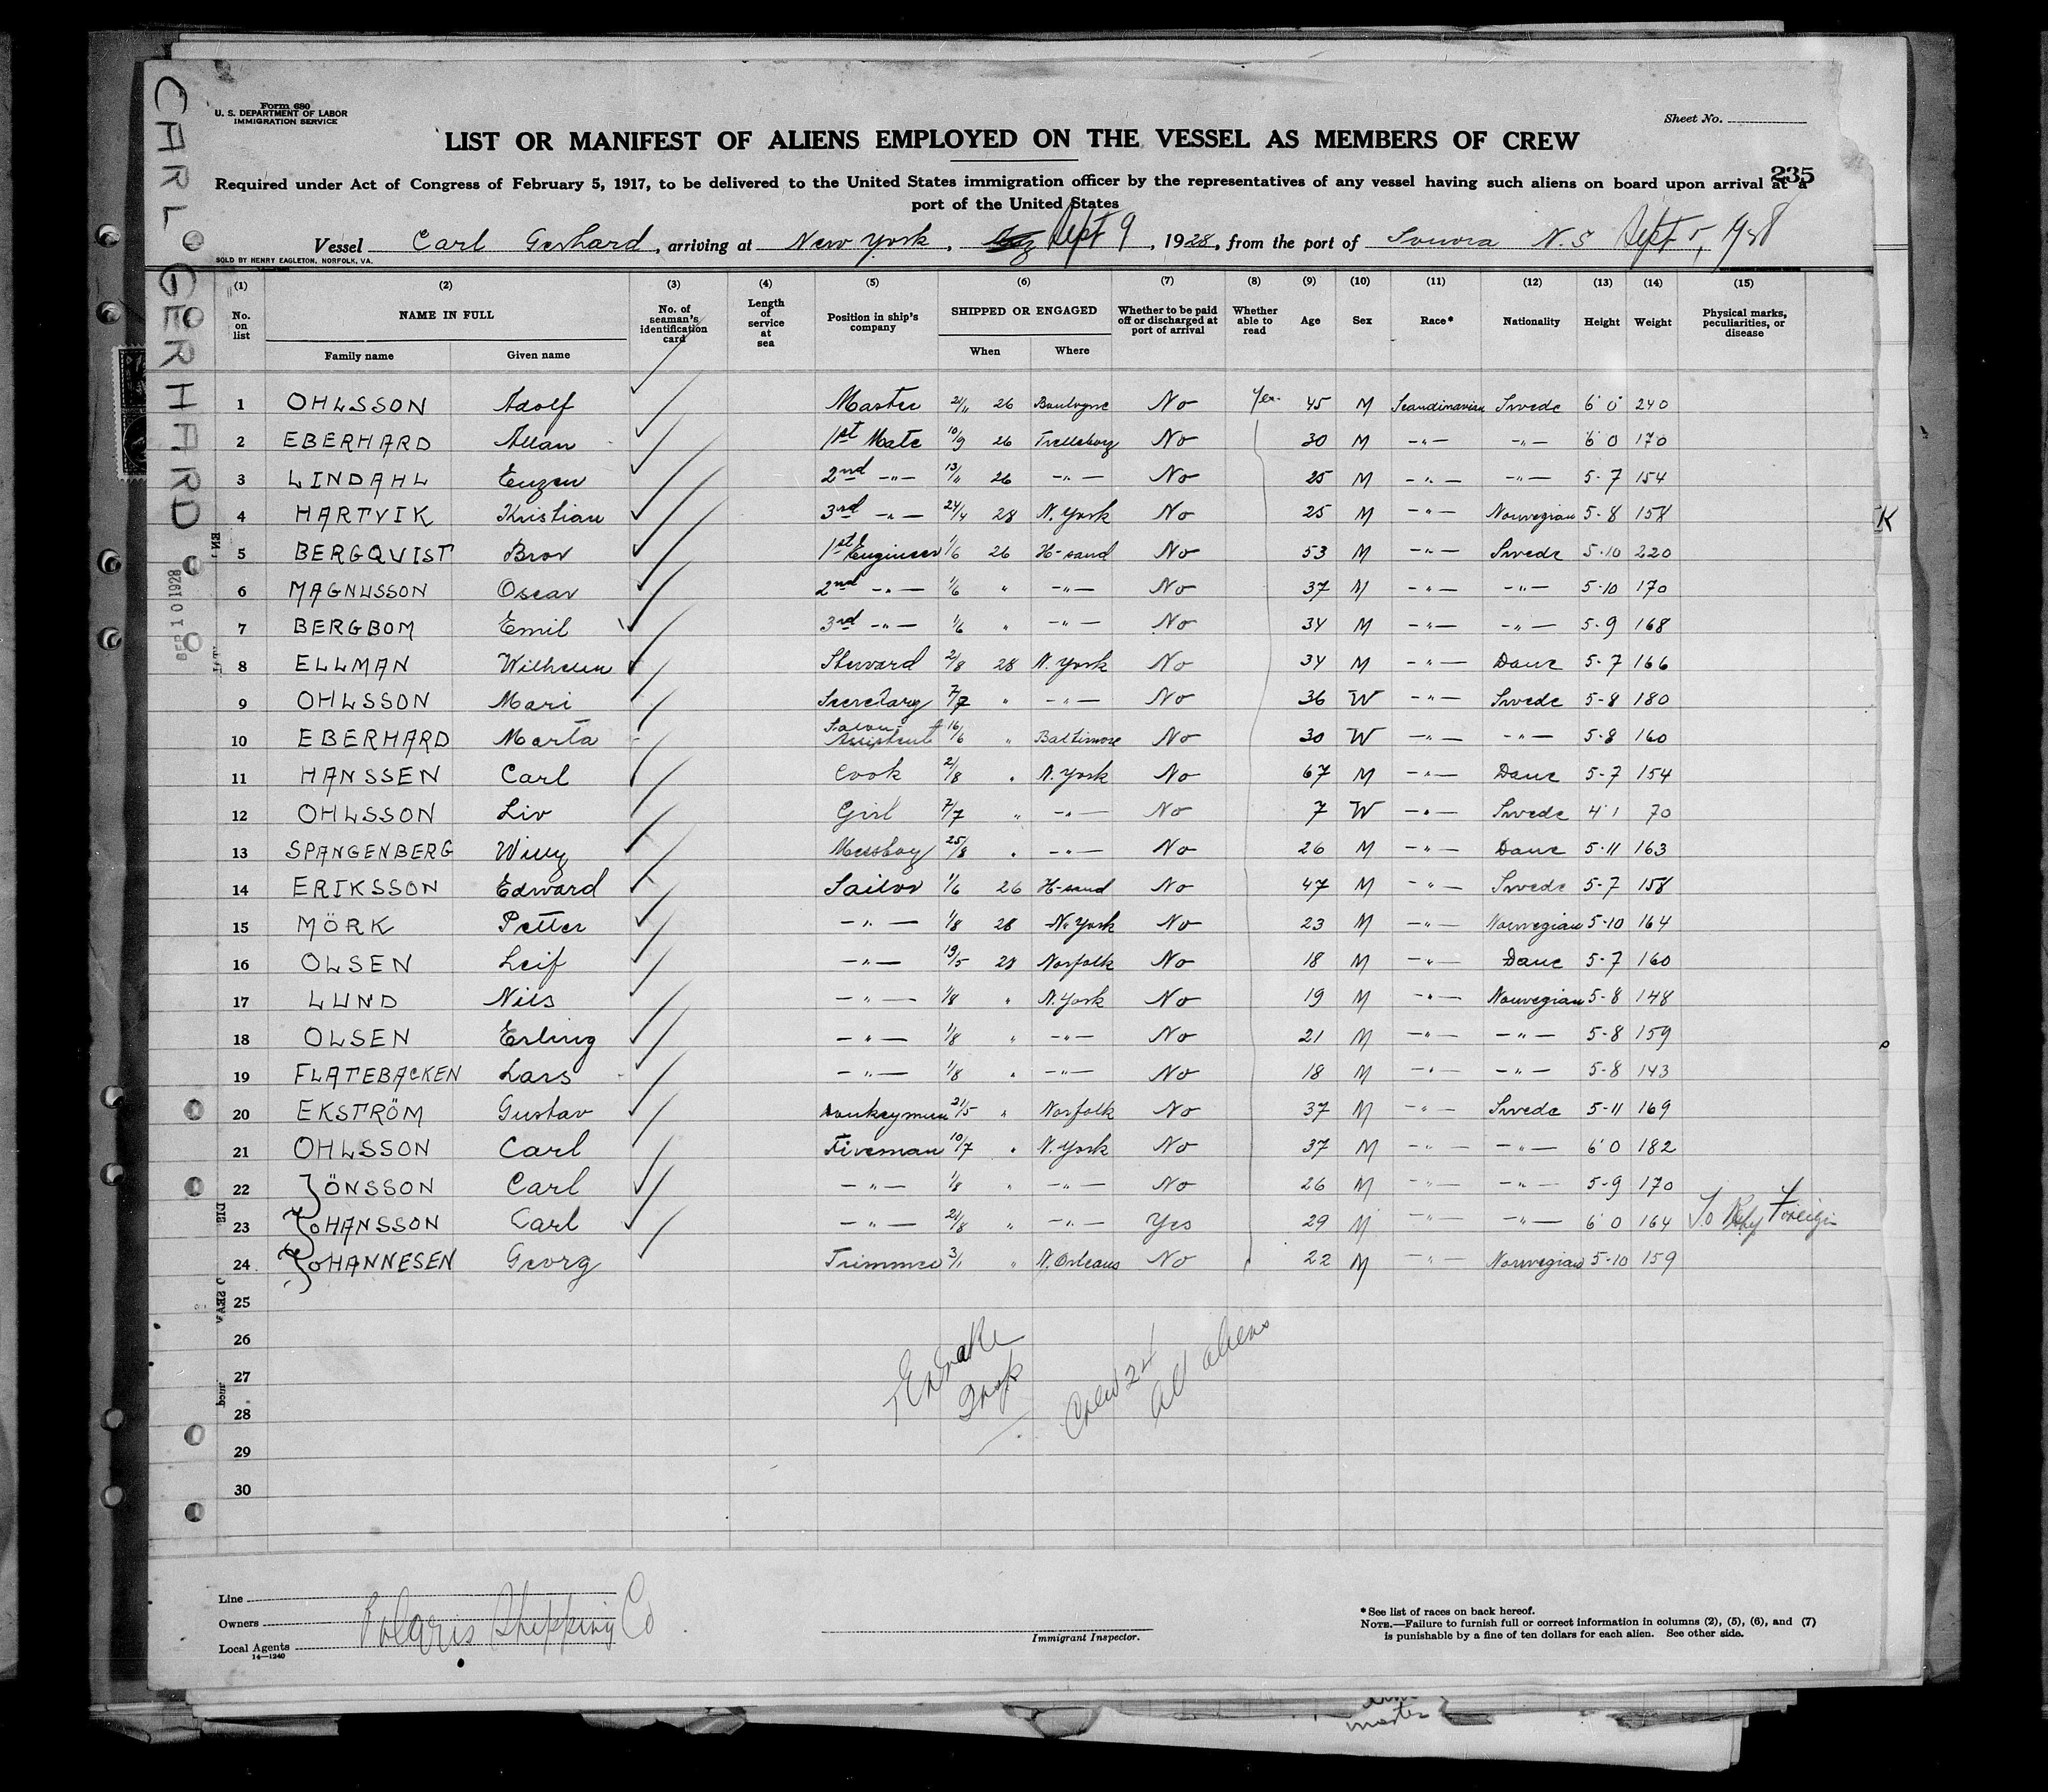 CARL GERHARD
Form 680
U. S. DEPARTMENT OF LABOR
IMMIGRATION SERVICE
Sheet No.
LIST OR MANIFEST OF ALIENS EMPLOYED ON THE VESSEL AS MEMBERS OF CREW
235
Required under Act of Congress of February 5, 1917, to be delivered to the United States immigration officer by the representatives of any vessel having such aliens on board upon arrival at a
port of the United States
Vessel Carl Gerhard, arriving at New York, Sept 9, 1928, from the port of N.S Sept 5, 1928
SOLD BY HENRY EAGLETON, NORFOLK, VA.
(1) (2) (3) (4) (5) (6) (7) (8) (9) (10) (11) (12) (13) (14) (15)
No. on list NAME IN FULL Family name Given name No. of seaman's identification card Length of service at sea Position in ship's company SHIPPED OR ENGAGED When Where Whether to be paid off or discharged at port of arrival Whether able to read Age Sex Race* Nationality Height Weight Physical marks, peculiarities, or disease
1 OHLSSON Adolf Master 21/11 26 Boulogne No Yes 45 M Scandinavian Swede 6'0" 240
2 EBERHARD Allan 1st Mate 10/9 26 Trelleborg No 30 M -"- -"- 6'0 170
3 LINDAHL Eugen 2nd -"- 13/11 26 -"- No 25 M -"- -"- 5-7 154
4 HARTVIK Kristian 3rd -"- 24/4 28 N. York No 25 M -"- Norwegian 5-8 158
5 BERGQVIST Bror 1st Engineer 1/6 26 H-sand No 53 M -"- Swede 5-10 220
6 MAGNUSSON Oscar 2nd -"- 1/6 " -"- No 37 M -"- -"- 5-10 170
7 BERGBOM Emil 3rd -"- 1/6 " -"- No 34 M -"- -"- 5-9 168
8 ELLMAN Wilhelm Stevard 2/8 28 N. York No 34 M -"- Dane 5-7 166
9 OHLSSON Mari Secretary 7/7 " -"- No 36 W -"- Swede 5-8 180
10 EBERHARD Marta Saloon Assistent 16/6 " Baltimore No 30 W -"- -"- 5-8 160
11 HANSSEN Carl Cook 2/8 " N. York No 67 M -"- Dane 5-7 154
12 OHLSSON Liv Girl 7/7 " -"- No 7 W -"- Swede 4'1 70
13 SPANGENBERG Willy Messboy 25/8 " -"- No 26 M -"- Dane 5-11 163
14 ERIKSSON Edward Sailor 1/6 26 H-sand No 47 M -"- Swede 5-7 158
15 MÖRK Petter -"- 1/8 28 N. York No 23 M -"- Norwegian 5-10 164
16 OLSEN Leif -"- 19/5 28 Norfolk No 18 M -"- Dane 5-7 160
17 LUND Nils -"- 1/8 " N. York No 19 M -"- Norwegian 5-8 148
18 OLSEN Erling -"- 1/8 " -"- No 21 M -"- -"- 5-8 159
19 FLATEBACKEN Lars -"- 1/8 " -"- No 18 M -"- -"- 5-8 143
20 EKSTRÖM Gustav Donkeyman 21/5 " Norfolk No 37 M -"- Swede 5-11 169
21 OHLSSON Carl Fireman 10/7 " N. York No 37 M -"- -"- 6'0 182
22 JÖNSSON Carl -"- 1/8 " -"- No 26 M -"- -"- 5-9 170
23 JOHANSSON Carl -"- 21/8 " -"- Yes 29 M -"- -"- 6'0 164 To Foreign
24 JOHANNESEN Georg Trimmer 3/1 " N. Orleans No 22 M -"- Norwegian 5-10 159
25
26
27
28
29
30
Crew 24
All aliens
SEP 10 1928
K
Line
Owners
Local Agents Polaris Shipping Co
14—1240
Immigrant Inspector.
*See list of races on back hereof.
NOTE.—Failure to furnish full or correct information in columns (2), (5), (6), and (7)
is punishable by a fine of ten dollars for each alien. See other side.
master